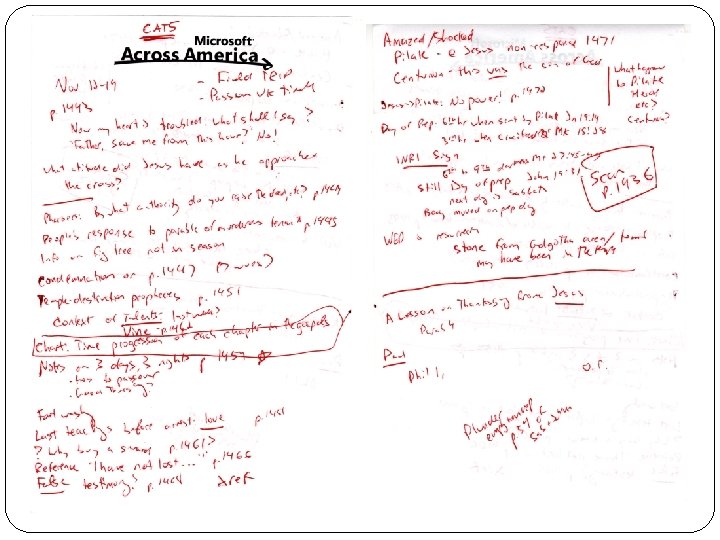 CATS
Microsoft
Across America
Nov 13-19
- Field Trip
- Passion wk timeln
p. 1443
Now my heart is troubled, what shall I say?
"Father, save me from this hour"? No!
What attitude did Jesus have as he approached
the cross?
Pharisees: By what authority do you raise the dead, etc? p. 1444
People's response to parable of murderous tenants p. 1445
Info on fig tree not in season
Condemnation on p. 1447 (7 woes)
Temple destruction prophecies p. 1451
Context of Talents: last week?
Vine - p. 1462
Chart: Time progression of each chapter in the gospels
Notes on 3 days, 3 nights p 1457
Foot wash
Last teachings before arrest: love p. 1461
? Why buy a sword p. 1461?
Reference "I have not lost..." p. 1466
False testimony? p. 1468
Amazed/shocked
Pilate - @ Jesus non-response 1471
Centurion - this was the son of God
Jesus → Pilate: No power! p. 1472
what happens
to Pilate
Herod
etc?
Centurion?
Day of Prep. 6th hr when sent by Pilate Jn 19:14
3rd hr when crucified Mk 15:25
INRI Sign
6th to 9th darkness Mt 27:45
Still Day of prep John 19:31
next day is Sabbath
Body moved on prep day
Scan
p. 1936
WED is resurrection
stone from Golgotha area/ tomb
may have been in the
A Lesson on Thanksgiving from Jesus
Paul
Phil 1,